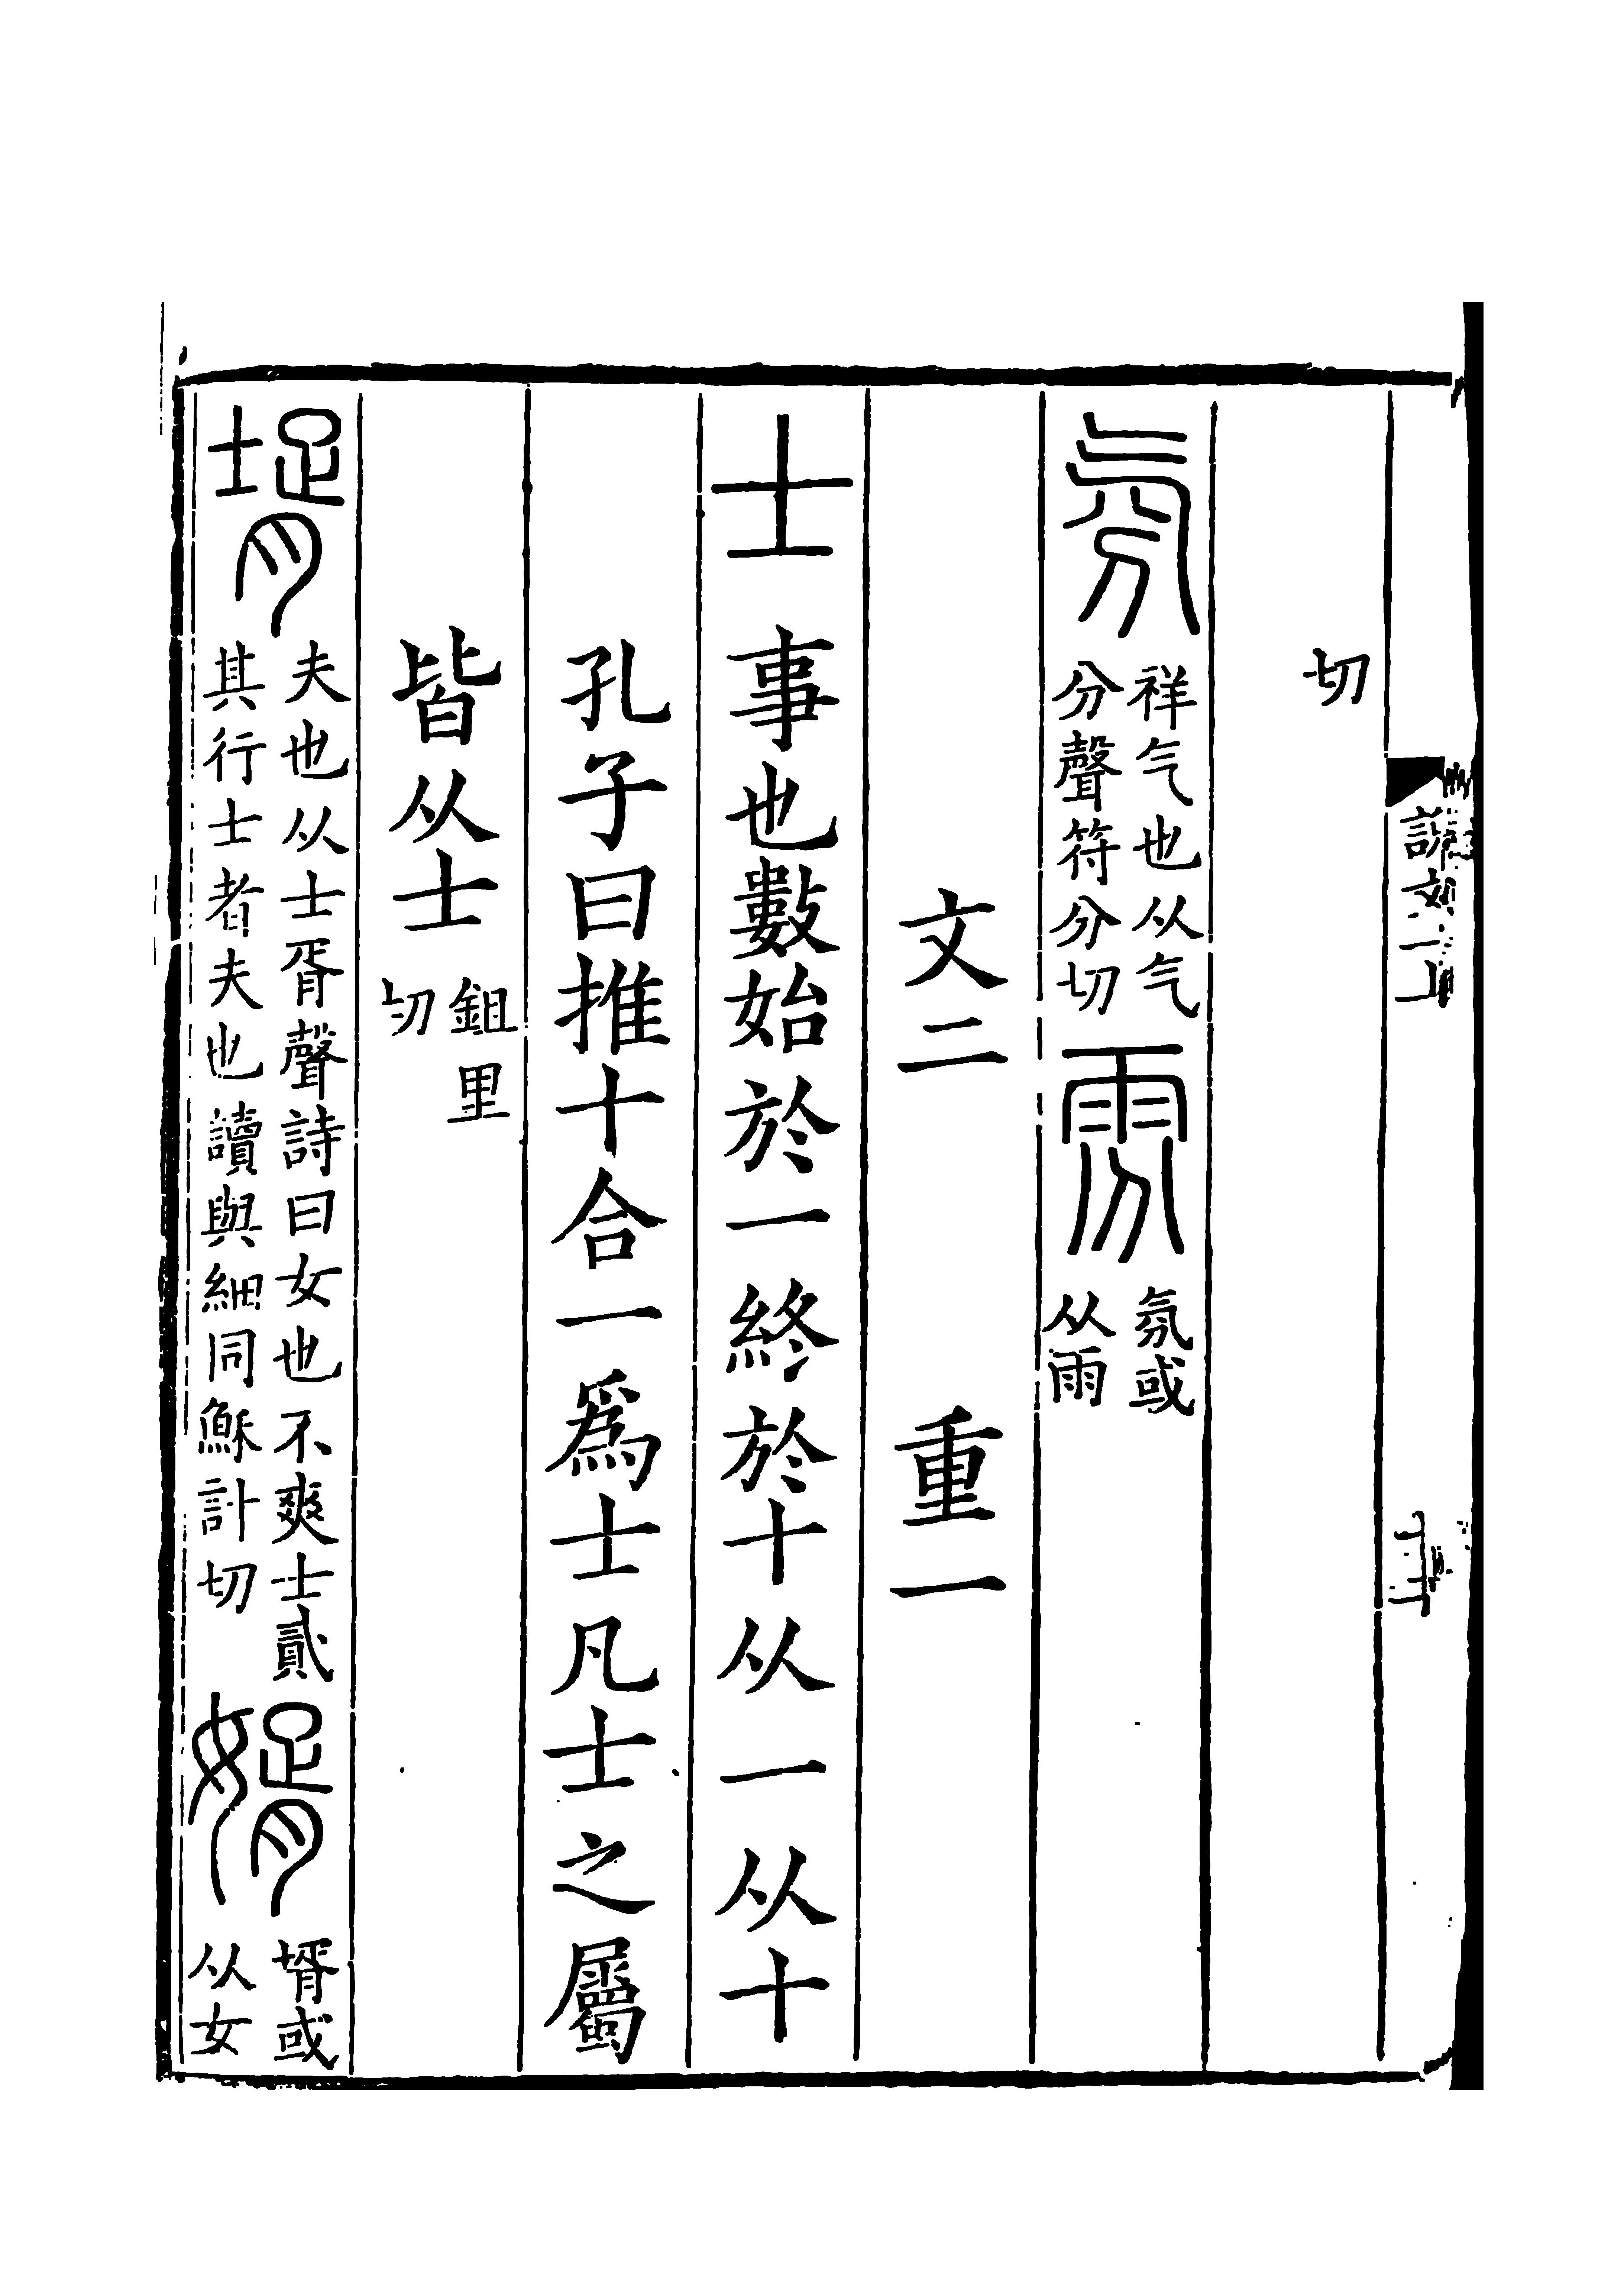 切
氛祥气也从气分聲符分切雰氛或从雨
文二　重一
士事也數始於一終於十从一从十
孔子曰推十合一爲士凡士之屬
皆从士鉏里切
壻夫也从士胥聲詩曰女也不爽士貳其行士者夫也讀與細同穌計切婿壻或从女